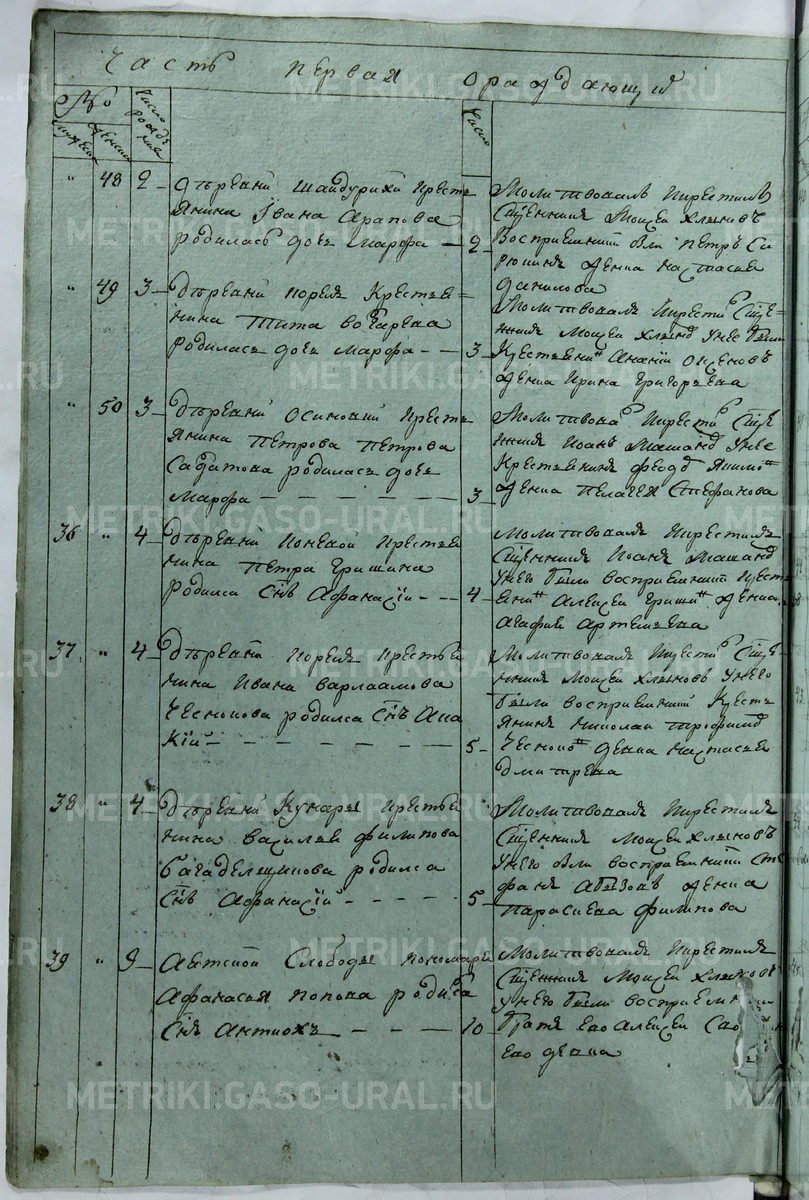 Часть первая о раждающихъ
№о
мужеска
женска
Число рождения
Число
" 48 2 дѣревни Шайдурихи кресть
янина Iвана Арапова
родилась дочь Марфа — 2
Молитвовалъ и крестилъ
Сщенникъ Моисей Хлыновъ
Восприемники были Петръ Си
девка Настасья
Данилова
" 49 3 Дѣревни Корелъ Крестья=
нина Тита Бочарева
родилась дочь Марфа — — 3
Молитвовалъ и крести Сще=
нникъ Моисей Хлынов у нее были
Крестьянин Ананiй
девка Ирина Григорьева
" 50 3 Дѣревни Осиновки кресть
янина Петрова Петрова
Садитова родилась дочь
Марфа — — — — — — 3
Молитвова и крести Сще
нникъ Иоанъ у нее
Крестьянинъ Феод Яким
девка Пелагея Стефанова
36 " 4 Дѣревни Коневой крестья
нина Петра Гришина
родился снъ Афанасiй — — 4
Молитвовалъ и крестилъ
Сщенникъ Иоанъ
у него были восприемники крест
янин Алексей Гриши девка
Агафия Артемьева
37 " 4 Дѣревни Корелъ крестья
нина Ивана Варлаамова
Чеснокова родился снъ Ака
кiй — — — — — — 5
Молитвовалъ и крести Сще
нникъ Моисей Хлыновъ у него
были восприемники крест
янинъ Николай Трофим
Чесноко девка Настасья
Дмитрева
38 " 4 Дѣревни Кунары крестья
нина Василья Филипова
Багаделщикова родился
снъ Афанасiй — — — — 5
Молитвовалъ и крестилъ
Сщенникъ Моисей Хлыновъ
у него были восприемники Сте
фанъ девка
Параскева Филипова
39 " 9 Аятской Слободы пономаря
Афанасья Попова родился
снъ Антиохъ — — — — 10
Молитвовалъ и крестилъ
Сщенникъ Моисей Хлынов
у него были восприемники
братъ ево Алексей
ево девка
METRIKI.GASO-URAL.RU